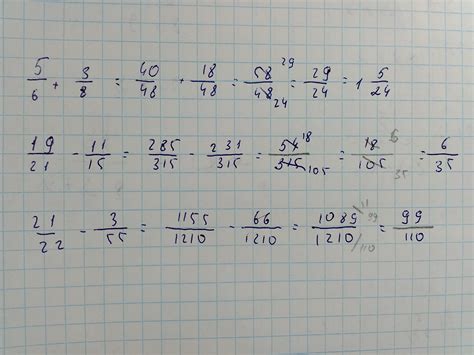 5/6 + 3/8 = 40/48 + 18/48 = 58/48 29 24 = 29/24 = 1 5/24
19/21 - 11/15 = 285/315 - 231/315 = 54/315 18 105 = 18/105 6 35 = 6/35
21/22 - 3/55 = 1155/1210 - 66/1210 = 1089/1210 11 99 110 = 99/110